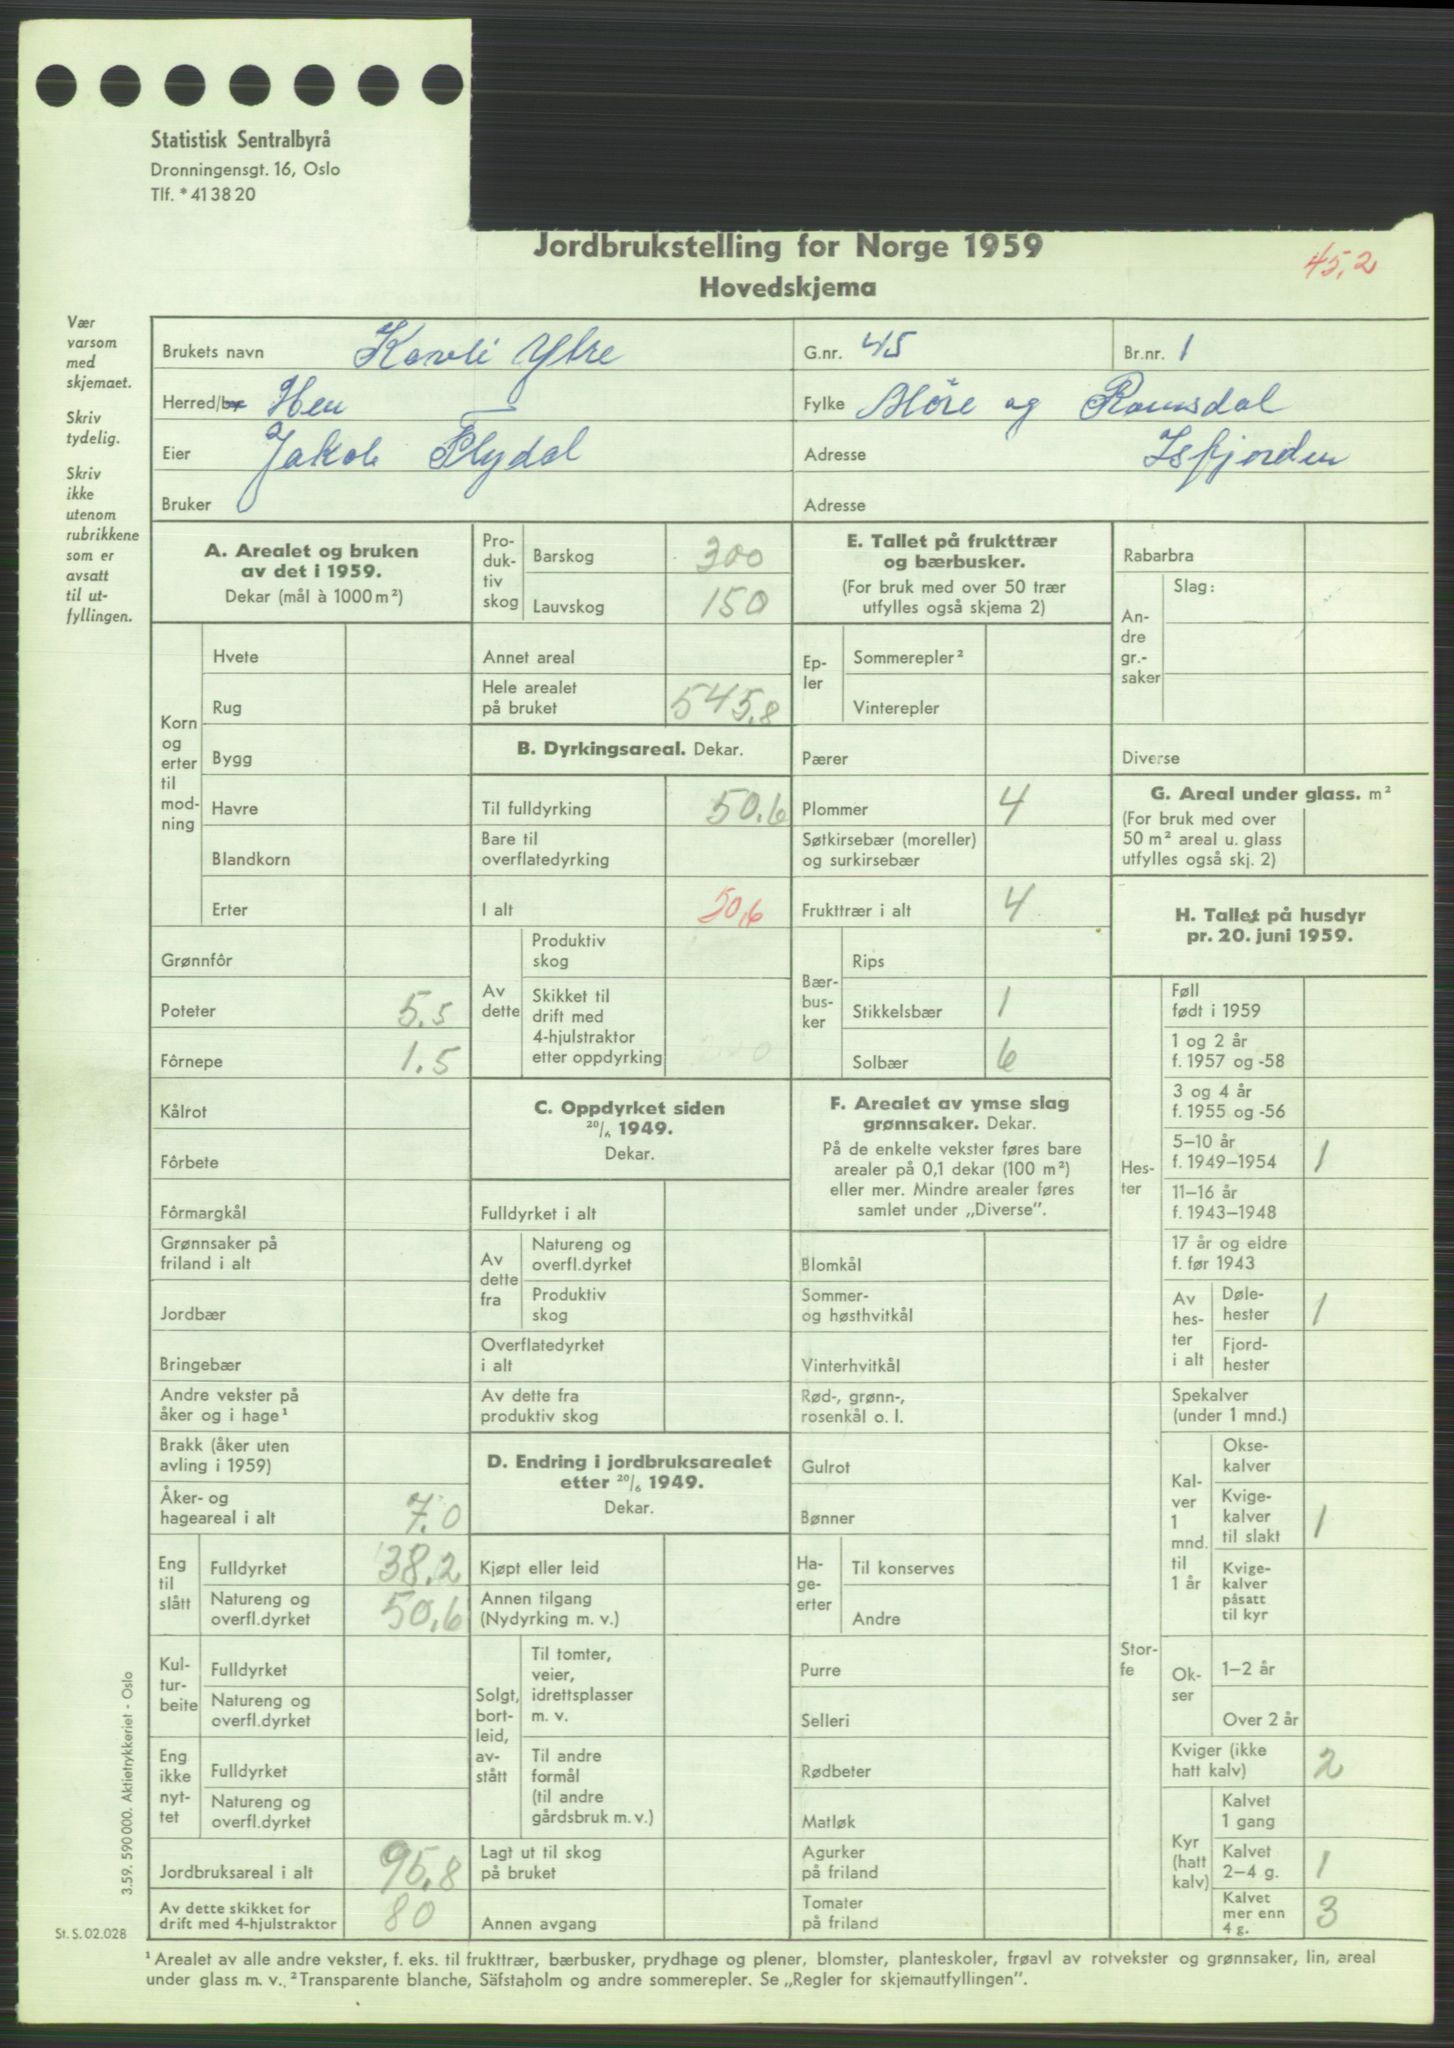 Statistisk Sentralbyrå
Dronningensgt. 16, Oslo
Tlf. * 41 38 20
Jordbrukstelling for Norge 1959
45,2
Hovedskjema
Vær
varsom
med
skjemaet.
Skriv
tydelig.
Skriv
ikke
utenom
rubrikkene
som er
avsatt
til ut-
fyllingen.
Brukets navn Kavli Ytre G.nr. 45 Br.nr. 1
Herred/by Hen Fylke Møre og Romsdal
Eier Jakob Flydal Adresse Isfjorden
Bruker Adresse
A. Arealet og bruken
av det i 1959.
Dekar (mål à 1000 m²)
Korn
og
erter
til
mod-
ning
Hvete
Rug
Bygg
Havre
Blandkorn
Erter
Grønnfôr
Poteter 5.5
Fôrnepe 1.5
Kålrot
Fôrbete
Fôrmargkål
Grønnsaker på
friland i alt
Jordbær
Bringebær
Andre vekster på
åker og i hage¹
Brakk (åker uten
avling i 1959)
Åker- og
hageareal i alt 7.0
Eng
til
slått
Fulldyrket 38.2
Natureng og
overfl.dyrket 50,6
Kul-
tur-
beite
Fulldyrket
Natureng og
overfl.dyrket
Eng
ikke
nyt-
tet
Fulldyrket
Natureng og
overfl.dyrket
Jordbruksareal i alt 95,8
Av dette skikket for
drift med 4-hjulstraktor 80
Pro-
duk-
tiv
skog
Barskog 300
Lauvskog 150
Annet areal
Hele arealet
på bruket 545,8
B. Dyrkingsareal. Dekar.
Til fulldyrking 50,6
Bare til
overflatedyrking
I alt 50,6
Av
dette
Produktiv
skog
Skikket til
drift med
4-hjulstraktor
etter oppdyrking
C. Oppdyrket siden
20/6 1949.
Dekar.
Fulldyrket i alt
Av
dette
fra
Natureng og
overfl.dyrket
Produktiv
skog
Overflatedyrket
i alt
Av dette fra
produktiv skog
D. Endring i jordbruksarealet
etter 20/6 1949.
Dekar.
Kjøpt eller leid
Annen tilgang
(Nydyrking m. v.)
Solgt,
bort-
leid,
av-
stått
Til tomter,
veier,
idrettsplasser
m. v.
Til andre
formål
(til andre
gårdsbruk m. v.)
Lagt ut til skog
på bruket
Annen avgang
E. Tallet på frukttrær
og bærbusker.
(For bruk med over 50 trær
utfylles også skjema 2)
Ep-
ler
Sommerepler²
Vinterepler
Pærer
Plommer 4
Søtkirsebær (moreller)
og surkirsebær
Frukttrær i alt 4
Bær-
bus-
ker
Rips
Stikkelsbær 1
Solbær 6
F. Arealet av ymse slag
grønnsaker. Dekar.
På de enkelte vekster føres bare
arealer på 0,1 dekar (100 m²)
eller mer. Mindre arealer føres
samlet under „Diverse".
Blomkål
Sommer-
og høsthvitkål
Vinterhvitkål
Rød-, grønn-,
rosenkål o. l.
Gulrot
Bønner
Ha-
ge-
erter
Til konserves
Andre
Purre
Selleri
Rødbeter
Matløk
Agurker
på friland
Tomater
på friland
Rabarbra
An-
dre
gr.-
saker
Slag:
Diverse
G. Areal under glass. m²
(For bruk med over
50 m² areal u. glass
utfylles også skj. 2)
H. Tallet på husdyr
pr. 20. juni 1959.
Hes-
ter
Føll
født i 1959
1 og 2 år
f. 1957 og -58
3 og 4 år
f. 1955 og -56
5–10 år
f. 1949–1954 1
11–16 år
f. 1943–1948
17 år og eldre
f. før 1943
Av
hes-
ter
i alt
Døle-
hester 1
Fjord-
hester
Stor-
fe
Spekalver
(under 1 mnd.)
Kal-
ver
1
mnd.
til
1 år
Okse-
kalver
Kvige-
kalver
til slakt 1
Kvige-
kalver
påsatt
til kyr
Ok-
ser
1–2 år
Over 2 år
Kviger (ikke
hatt kalv) 2
Kyr
(hatt
kalv)
Kalvet
1 gang
Kalvet
2–4 g. 1
Kalvet
mer enn
4 g. 3
3.59. 590 000. Aktietrykkeriet - Oslo
St. S. 02.028
¹ Arealet av alle andre vekster, f. eks. til frukttrær, bærbusker, prydhage og plener, blomster, planteskoler, frøavl av rotvekster og grønnsaker, lin, areal
under glass m. v. ² Transparente blanche, Säfstaholm og andre sommerepler. Se „Regler for skjemautfyllingen".